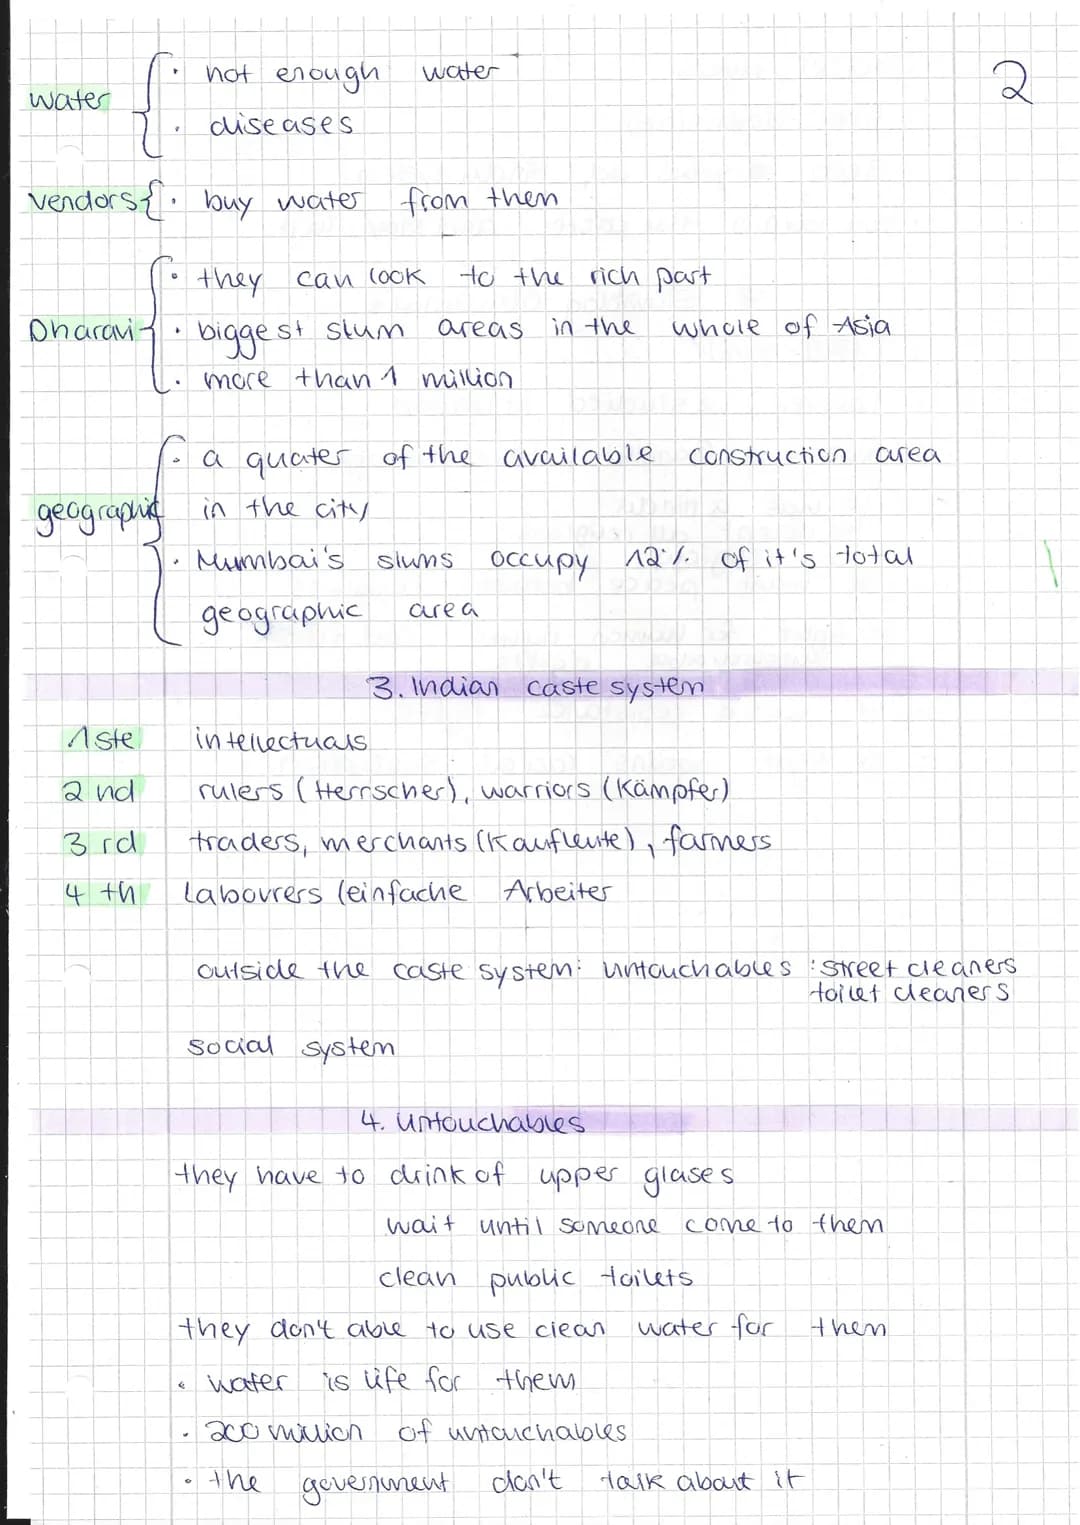 2
water
• not enough water
• diseases
vendors • buy water from then
• they can look to the rich part
Dharavi • biggest slum areas in the whole of Asia
• more than 1 million
• a quater of the available construction area
geographic in the city
• Mumbai's slums occupy 12% of it's total
geographic area
3. Indian caste system
1ste intellectuals
2nd rulers (Herrscher), warriors (Kämpfer)
3rd traders, merchants (Kaufleute), farmers
4th Labourers (einfache Arbeiter
outside the caste system: untouchables : street cleaners
toilet cleaners
social system
4. Untouchables
they have to drink of upper glases
wait until someone come to them
clean public toilets
they don't able to use clean water for them
• water is life for them
• 200 million of untouchables
• the government don't talk about it